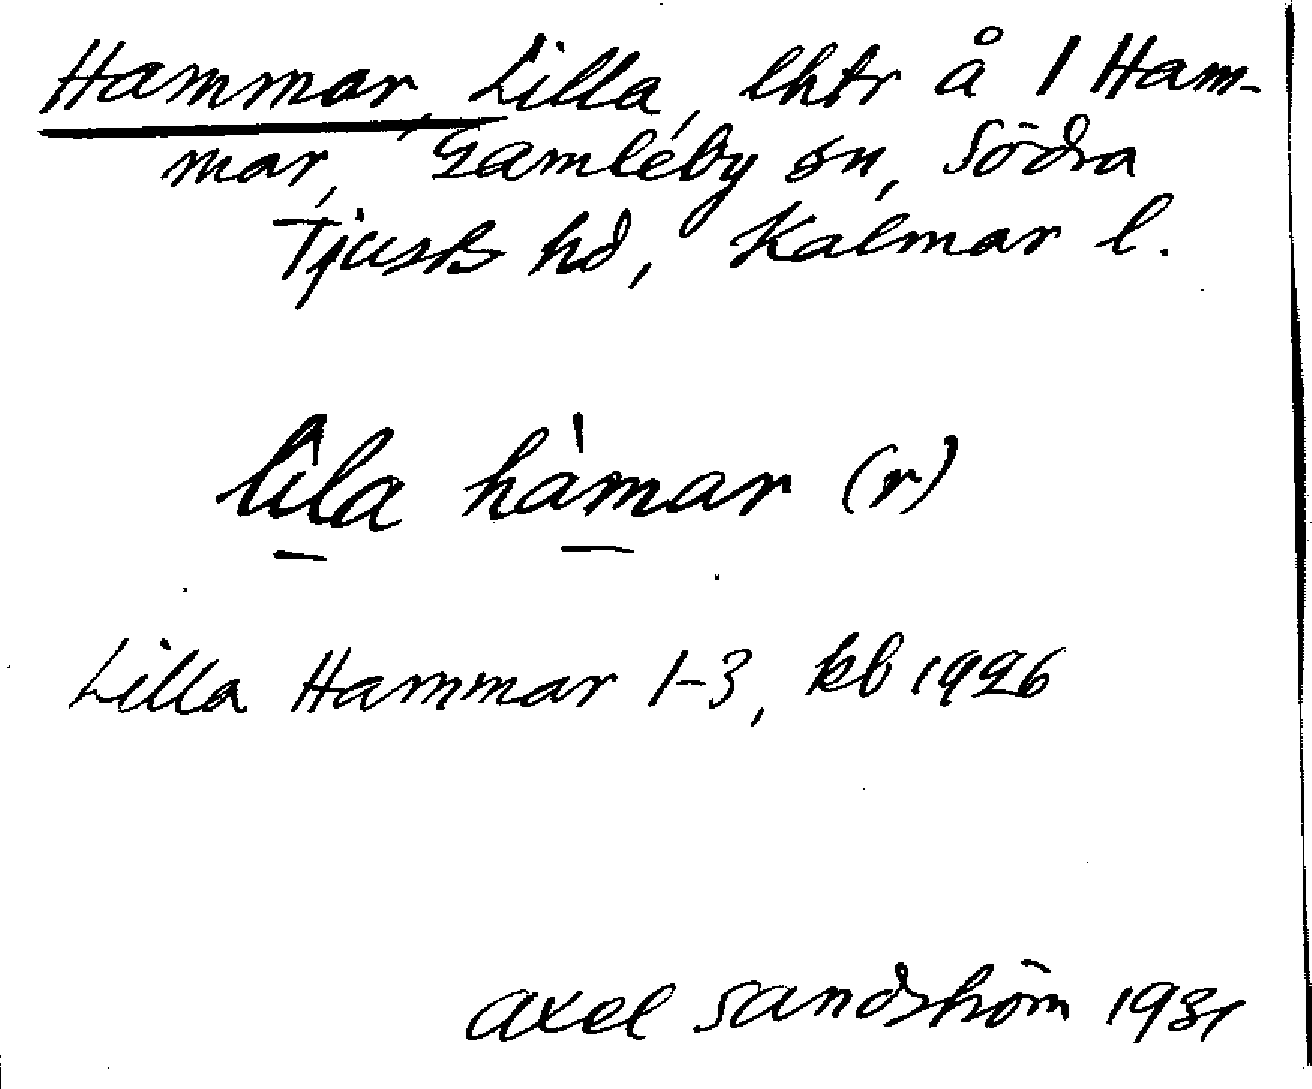 Hammar, Lilla, lhtr å 1 Ham-
mar, Gamleby sn, Södra
Tjusts hd, Kalmar l.
lìla hàmar (r)
Lilla Hammar 1-3, kb 1926
Axel Sandström 1931